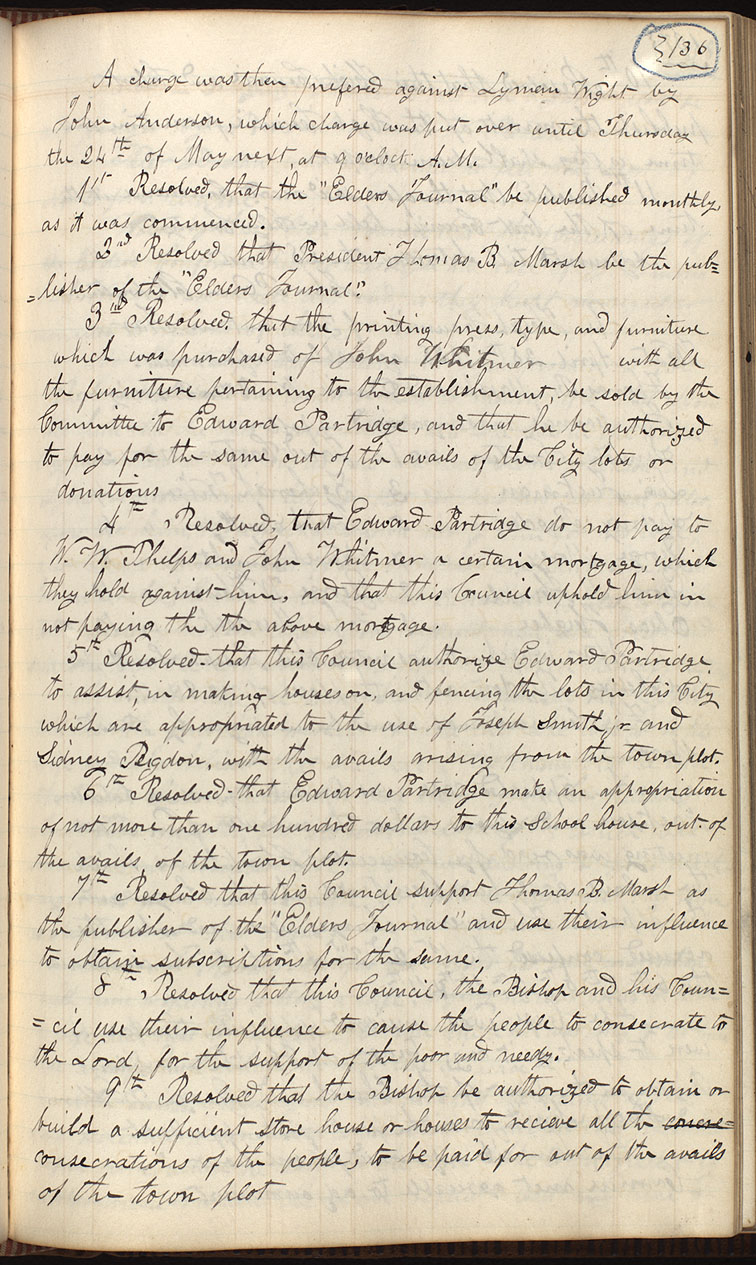 136
A charge was then prefered against Lyman Wight by
John Anderson, which charge was put over until Thursday
the 24th of May next, at 9 oclock A.M.
1st Resolved, that the "Elders Journal" be published monthly,
as it was commenced.
2nd Resolved that President Thomas B. Marsh be the pub=
=lisher of the "Elders Journal".
3rd Resolved. that the printing press, type, and furniture
which was purchased of John Whitmer with all
the furniture pertaining to the establishment, be sold by the
Committe to Edward Partridge, and that he be authorized
to pay for the same out of the avails of the City lots or
donations
4th Resolved, that Edward Partridge do not pay to
W. W. Phelps and John Whitmer a certain mortgage, which
they hold against him, and that this Council uphold him in
not paying the the above mortgage.
5th Resolved - that this Council authorize Edward Partridge
to assist, in making houses on, and fencing the lots in this City
which are appropriated to the use of Joseph Smith jr. and
Sidney Rigdon, with the avails arising from the town plot.
6th Resolved - that Edward Partridge make an appropriation
of not more than one hundred dollars to this School house, out of
the avails of the town plot.
7th Resolved that this Council support Thomas B. Marsh as
the publisher of the "Elders Journal" and use their influence
to obtain subscriptions for the same.
8th Resolved that this Council, the Bishop and his Coun=
=cil use their influence to cause the people to consecrate to
the Lord, for the support of the poor and needy.
9th Resolved that the Bishop be authorized to obtain or
build a sufficient store house or houses to recieve all the
consecrations of the people, to be paid for out of the avails
of the town plot